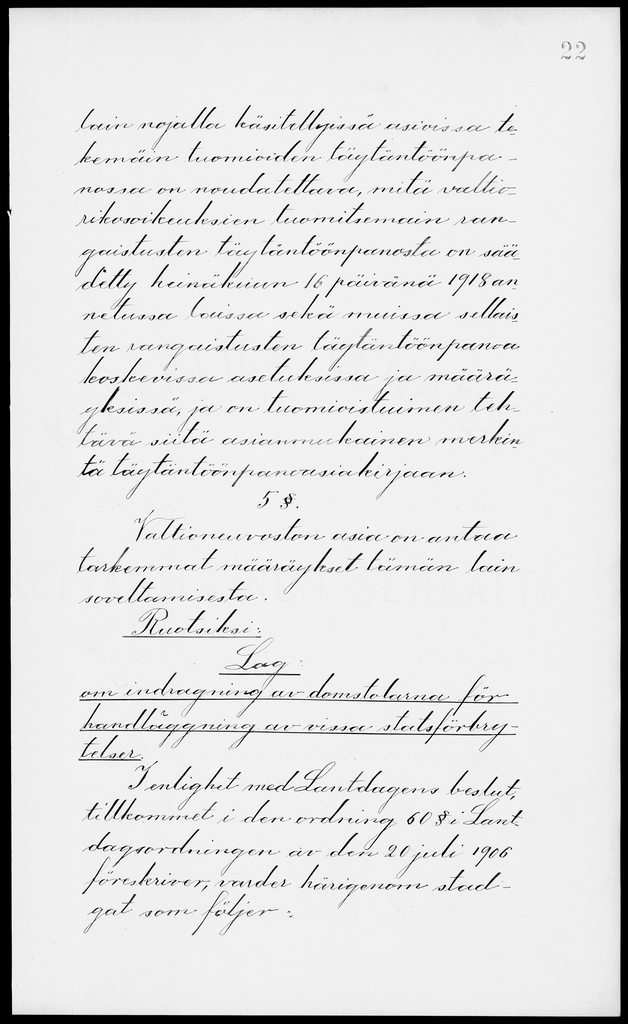 22
lain nojalla käsitellyissä asioissa te-
kemäin tuomioiden täytäntöönpa-
nossa on noudatettava, mitä valtio-
rikosoikeuksien tuomitsemain ran-
gaistusten täytäntöönpanosta on sää-
detty heinäkuun 16 päivänä 1918 an-
netussa laissa sekä muissa sellais-
ten rangaistusten täytäntöönpanoa
koskevissa asetuksissa ja määrä-
yksissä, ja on tuomioistuimen teh-
tävä siitä asianmukainen merkin-
tä täytäntöönpanoasiakirjaan.
5 §.
Valtioneuvoston asia on antaa
tarkemmat määräykset tämän lain
soveltamisesta.
Ruotsiksi:
Lag:
om indragning av domstolarna för
handläggning av vissa statsförbry-
telser.
I enlighet med Lantdagens beslut,
tillkommet i den ordning 60 § i Lant-
dagsordningen av den 20 juli 1906
föreskriver, varder härigenom stad-
gat som följer: